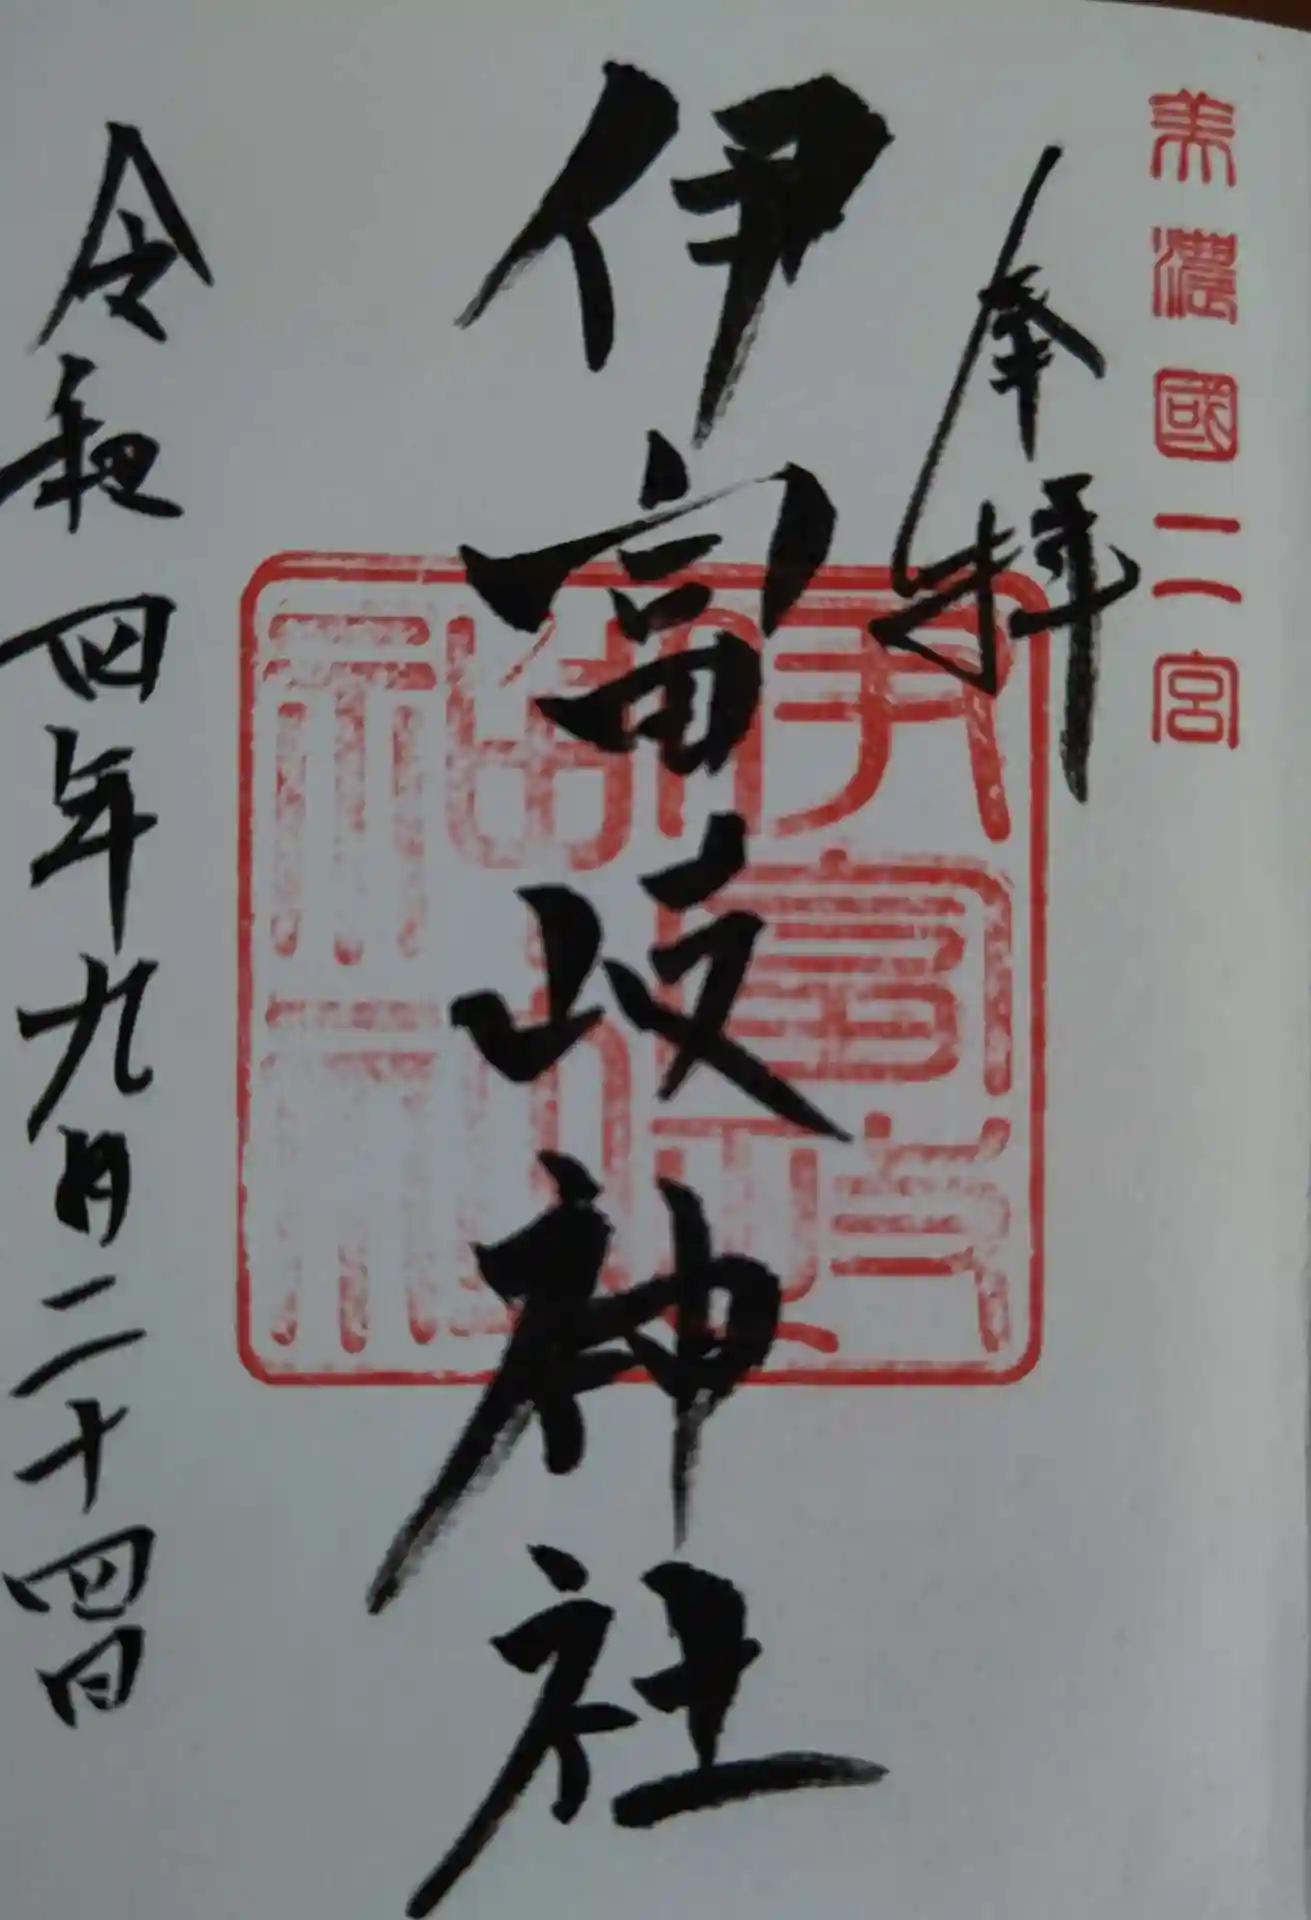 美濃國二宮
奉拝
伊富岐神社
令和四年九月二十四日